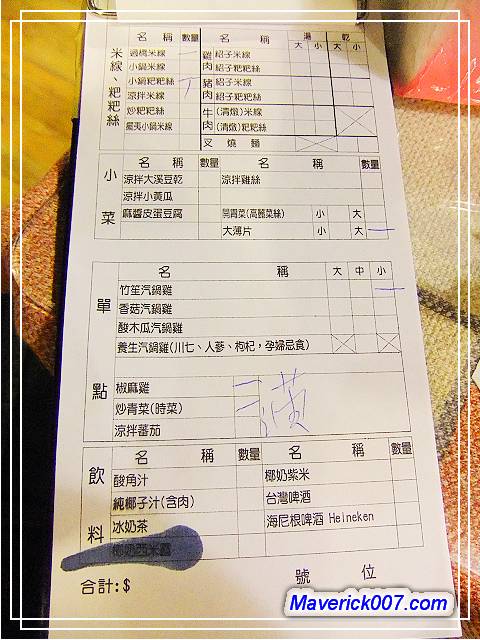 米線、粑粑絲 名稱 數量 名稱 湯 乾
大 小 大 小
過橋米線 一 雞肉 紹子米線
小鍋米線 紹子粑粑絲
小鍋粑粑絲 豬肉 紹子米線
涼拌米線 紹子粑粑絲
炒粑粑絲 牛肉 (清燉)米線
(清燉)粑粑絲
叉燒麵
小菜 名稱 數量 名稱 數量
涼拌大溪豆乾 涼拌雞絲
涼拌小黃瓜
麻醬皮蛋豆腐 開青菜(高麗菜絲) 小 大
大薄片 小 大 一
單點 名稱 大 中 小
竹笙汽鍋雞 一
香菇汽鍋雞
酸木瓜汽鍋雞
養生汽鍋雞(川七、人蔘、枸杞，孕婦忌食)
椒麻雞 一
炒青菜(時菜) 一
涼拌蕃茄
飲料 名稱 數量 名稱 數量
酸角汁 椰奶紫米
純椰子汁(含肉) 台灣啤酒
冰奶茶 海尼根啤酒 Heineken
椰奶西米露
合計:$ 號 位
Maverick007.com